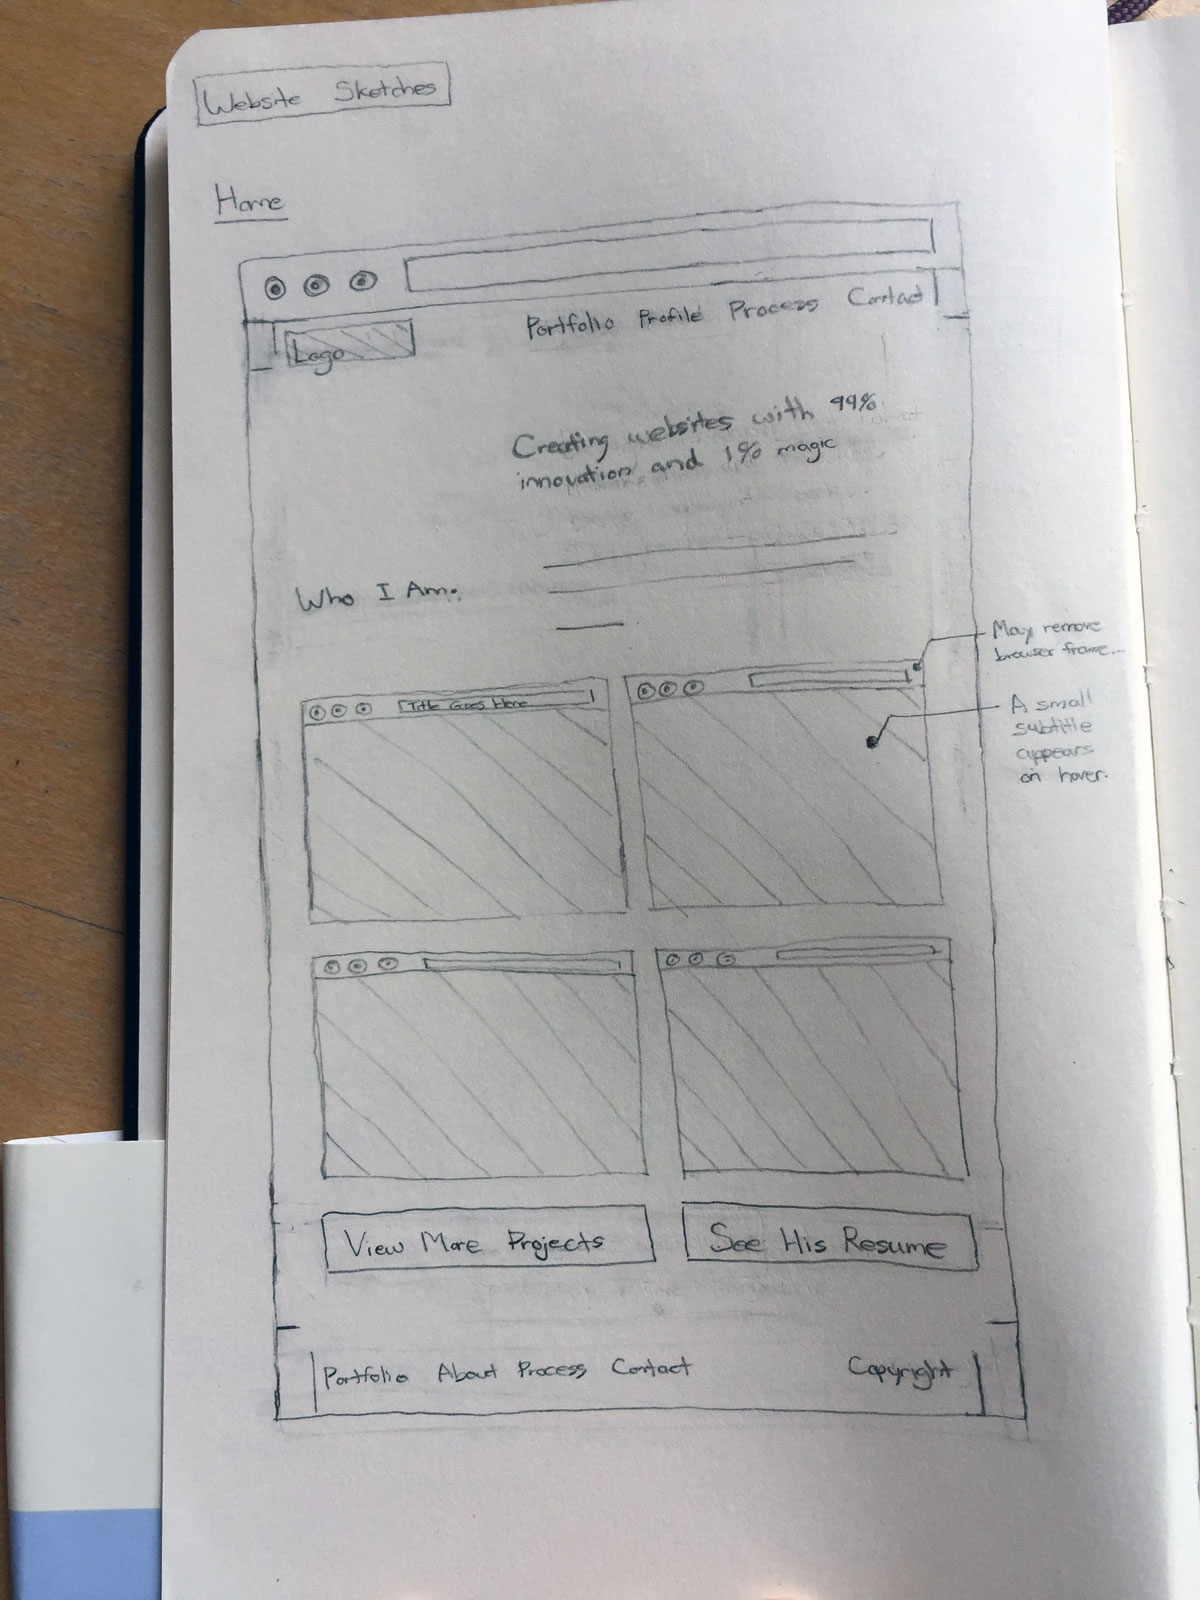 Website Sketches
Home
Logo
Portfolio Profile Process Contact
Creating websites with 99%
innovation and 1% magic
Who I Am.
May remove
browser frame...
Title Goes Here
A small
subtitle
appears
on hover.
View More Projects
See His Resume
Portfolio About Process Contact
Copyright